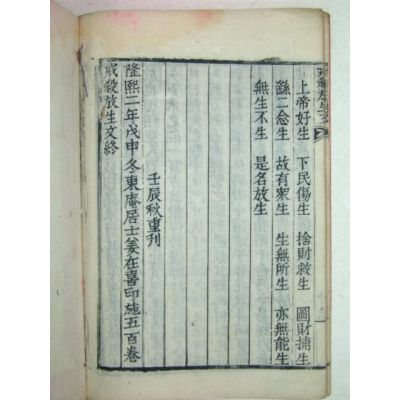 上帝好生 下民傷生 捨財救生 圖財捕生
繇二念生 故有衆生 生無所生 亦無能生
無生不生 是名放生
壬辰秋重刊
隆熙二年戊申冬東庵居士姜在喜印施五百卷
戒殺放生文終